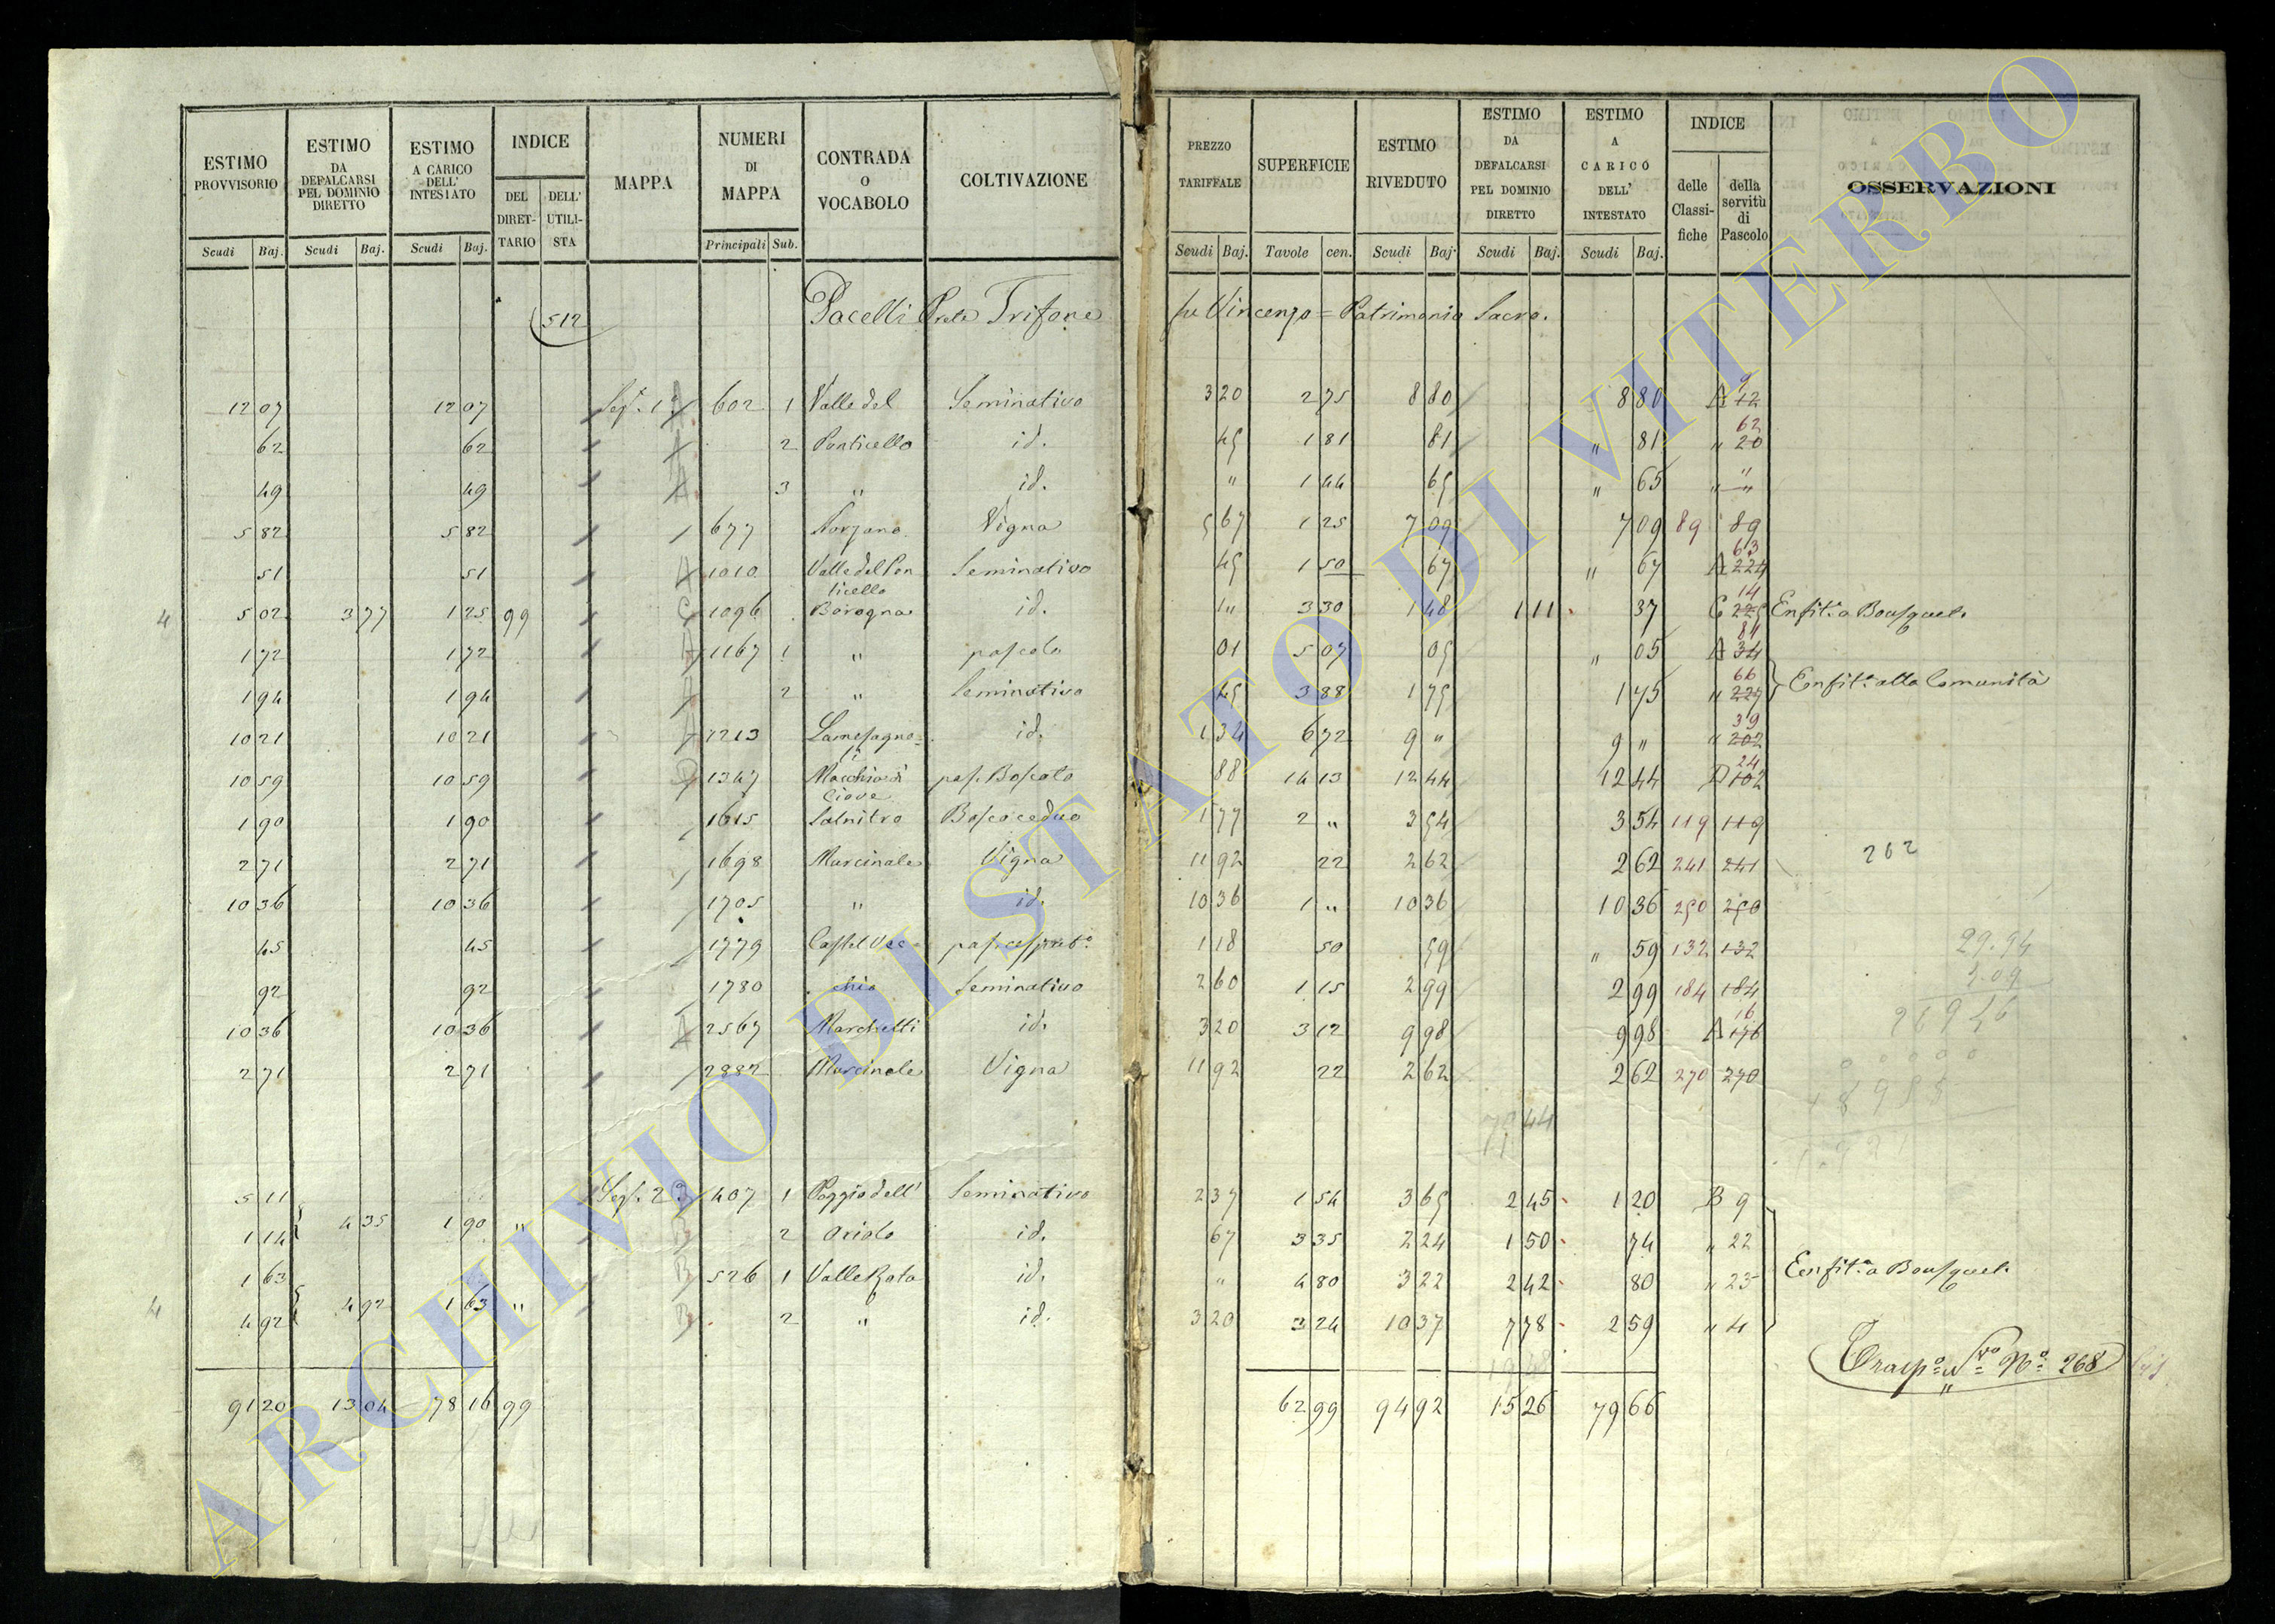 ESTIMO PROVVISORIO | ESTIMO DA DEFALCARSI PEL DOMINIO DIRETTO | ESTIMO A CARICO DELL' INTESTATO | INDICE DEL DIRETTARIO | DELL' UTILISTA | MAPPA | NUMERI DI MAPPA | CONTRADA O VOCABOLO | COLTIVAZIONE | PREZZO TARIFFALE | SUPERFICIE | ESTIMO RIVEDUTO | ESTIMO DA DEFALCARSI PEL DOMINIO DIRETTO | ESTIMO A CARICO DELL' INTESTATO | INDICE delle Classifiche | della servitù di Pascolo | OSSERVAZIONI
Scudi Baj. | Scudi Baj. | Scudi Baj. | Principali Sub. | Scudi Baj. | Tavole cen. | Scudi Baj. | Scudi Baj. | Scudi Baj.
512 Pacelli Prete Trifone fu Vincenzo = Patrimonio Sacro.
12 07 | 12 07 | Sez. 1ª | 602 1 | Valle del | Seminativo | 3 20 | 2 75 | 8 80 | 8 80 | A 12 9
62 | 62 | 2 | Ponticello | id. | 45 | 1 81 | 81 | " 81 | " 20 62
49 | 49 | A | 3 | " | id. | " | 1 44 | 65 | " 65 | " "
5 82 | 5 82 | 677 | Norzano | Vigna | 5 67 | 1 25 | 7 09 | 7 09 | 89 89
51 | 51 | A | 1010 | Valle del Pon | Seminativo | 45 | 1 50 | 67 | " 67 | A 224 63
ticello
4 | 5 02 | 3 77 | 1 25 | 99 | C | 1096 | Borogna | id. | 1 " | 3 30 | 1 48 | 1 11 | 37 | C 225 14 | Enfit.a Bousquet.
1 72 | 1 72 | A | 1167 1 | " | pascolo | 01 | 5 07 | 05 | " 05 | A 34 81
1 94 | 1 94 | A | 2 | " | Seminativo | 45 | 3 88 | 1 75 | 1 75 | " 227 66 | Enfit.a alla Comunità
10 21 | 10 21 | 1213 | id. | 1 34 | 6 72 | 9 " | 9 " | " 202 39
10 59 | 10 59 | D | 1347 | Macchia di | pas. Boscato | 88 | 14 13 | 12 44 | 12 44 | D 102 24
Giove
1 90 | 1 90 | 1615 | Salnitro | Bosco ceduo | 1 77 | 2 " | 3 54 | 3 54 | 119 119
2 71 | 2 71 | 1698 | Murcinale | Vigna | 11 92 | 22 | 2 62 | 2 62 | 241 241 | 202
10 36 | 10 36 | 1705 | " | id. | 10 36 | 1 " | 10 36 | 10 36 | 250 250
45 | 45 | 1779 | Castel Vec= | pas. cesp | 1 18 | 50 | 59 | " 59 | 132 132 | 29.94
92 | 92 | 1780 | chio | Seminativo | 2 60 | 1 15 | 2 99 | 2 99 | 184 184
10 36 | 10 36 | A | 2567 | Marchetti | id. | 3 20 | 3 12 | 9 98 | 9 98 | A 176 16
2 71 | 2 71 | 2882 | Murcinale | Vigna | 11 92 | 22 | 2 62 | 2 62 | 270 270
5 11 | Sez. 2ª | 407 1 | Poggio dell' | Seminativo | 2 37 | 1 54 | 3 65 | 2 45 | 1 20 | B 9
4 35 | 1 90 | "
1 14 | B | 2 | Oriolo | id. | 67 | 3 35 | 2 24 | 1 50 | 74 | " 22
1 63 | B | 526 1 | Valle Rota | id. | " | 4 80 | 3 22 | 2 42 | 80 | " 23 | Enfit.a Bousquet.
4 | 4 92 | 1 63 | "
4 92 | B | 2 | " | id. | 3 20 | 3 24 | 10 37 | 7 78 | 2 59 | " 4
Nº 268 bis
91 20 | 13 04 | 78 16 | 99 | 62 99 | 94 92 | 15 26 | 79 66
ARCHIVIO DI STATO DI VITERBO